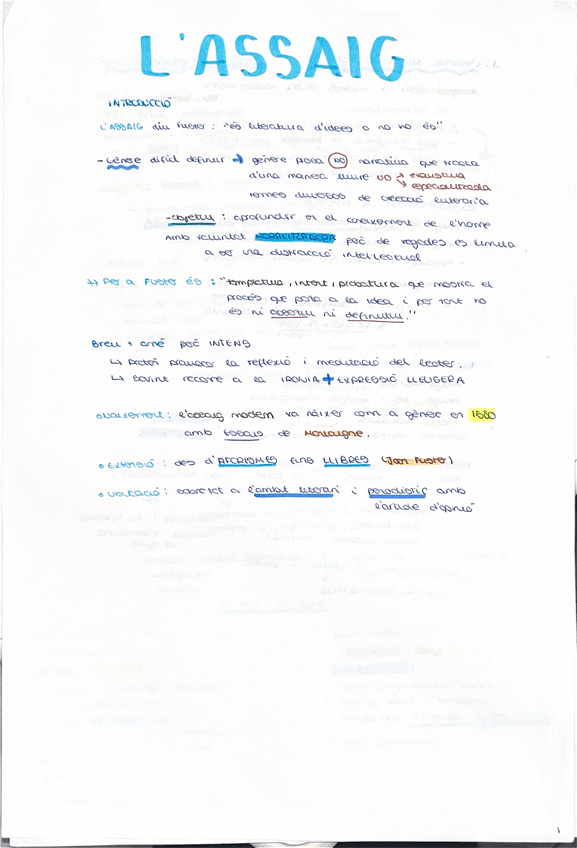 L'ASSAIG
INTRODUCCIÓ
L'ASSAIG diu Fuster: "és literatura d'idees o no no és"
- Gènere difícil definir → gènere prosa NO narrativa que tracta
d'una manera lliure NO → exhaustiva
→ especialitzada
temes diversos de creació literària
- objectiu: aprofundir en el coneixement de l'home
amb voluntat MORALITZADORA però de vegades es limita
a ser una distracció intel·lectual
Per a Fuster és: "temptativa, intent, provatura que mostra el
procés que porta a la idea i per tant no
és ni absolut ni definitiu."
Breu + amè però INTENS
↳ Pretén provocar la reflexió i meditació del lector.
↳ Sovint recorre a la IRONIA + EXPRESSIÓ LLEUGERA
Naixement: l'assaig modern va nàixer com a gènere en 1580
amb Essais de Montaigne.
Extensió: des d'AFORISMES fins LLIBRES (Joan Fuster)
sobretot a l'àmbit literari i periodístic amb
l'article d'opinió
1